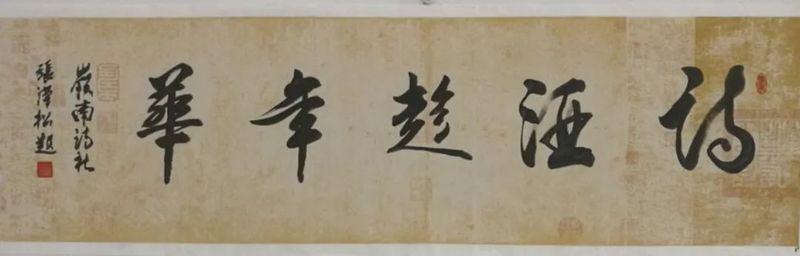 詩酒趁年華
嶺南詩社
張澤松題